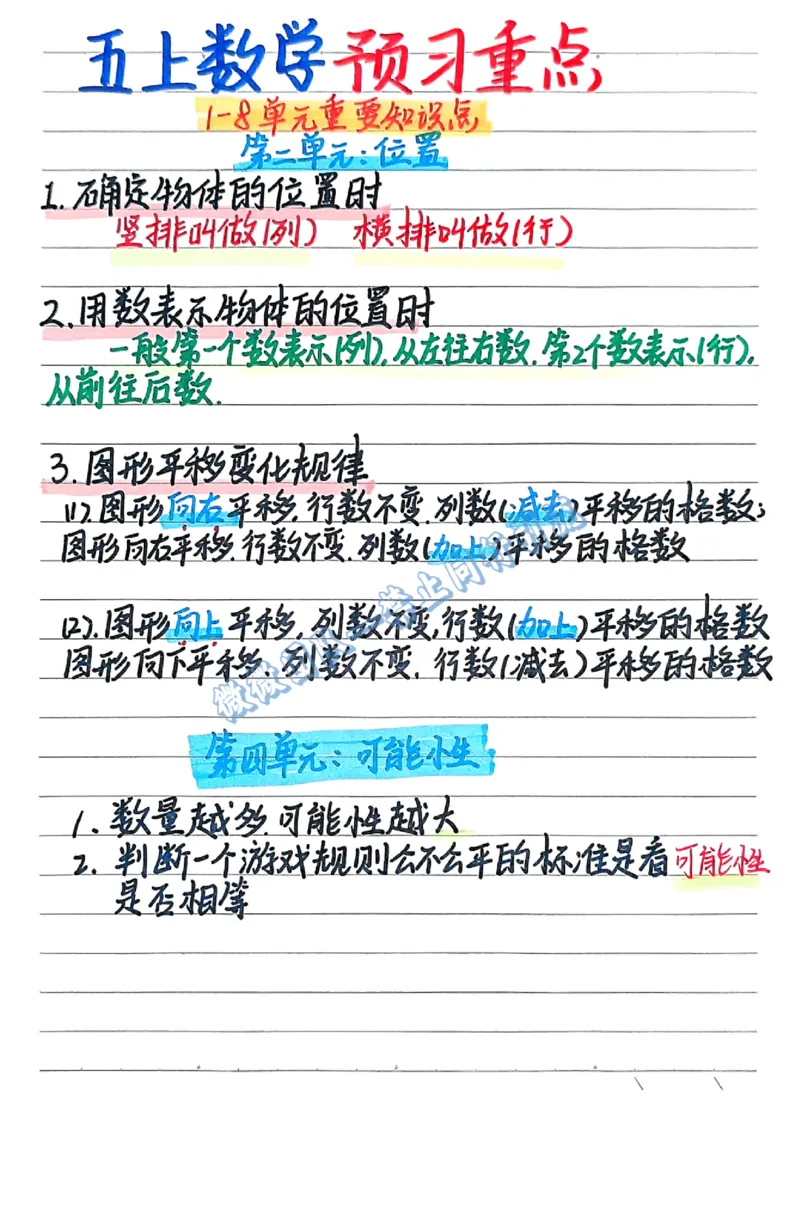 五上数学 预习重点
1-8单元重要知识点
第二单元:位置
1. 确定物体的位置时
竖排叫做(列) 横排叫做(行)
2. 用数表示物体的位置时
一般第一个数表示(列),从左往右数.第2个数表示(行),
从前往后数.
3. 图形平移变化规律
(1).图形向右平移,行数不变.列数(减去)平移的格数;
图形向右平移.行数不变.列数(加上)平移的格数
(2).图形向上平移,列数不变,行数(加上)平移的格数
图形向下平移,列数不变.行数(减去)平移的格数
第四单元:可能性:
1. 数量越多.可能性越大
2. 判断一个游戏规则公不公平的标准是看可能性
是否相等